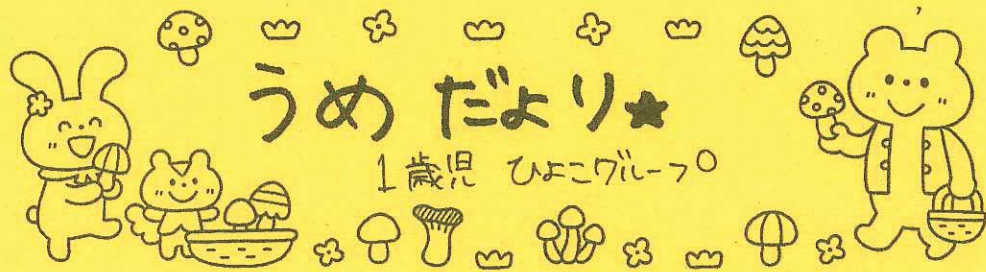 うめだより★
1歳児 ひよこグループ